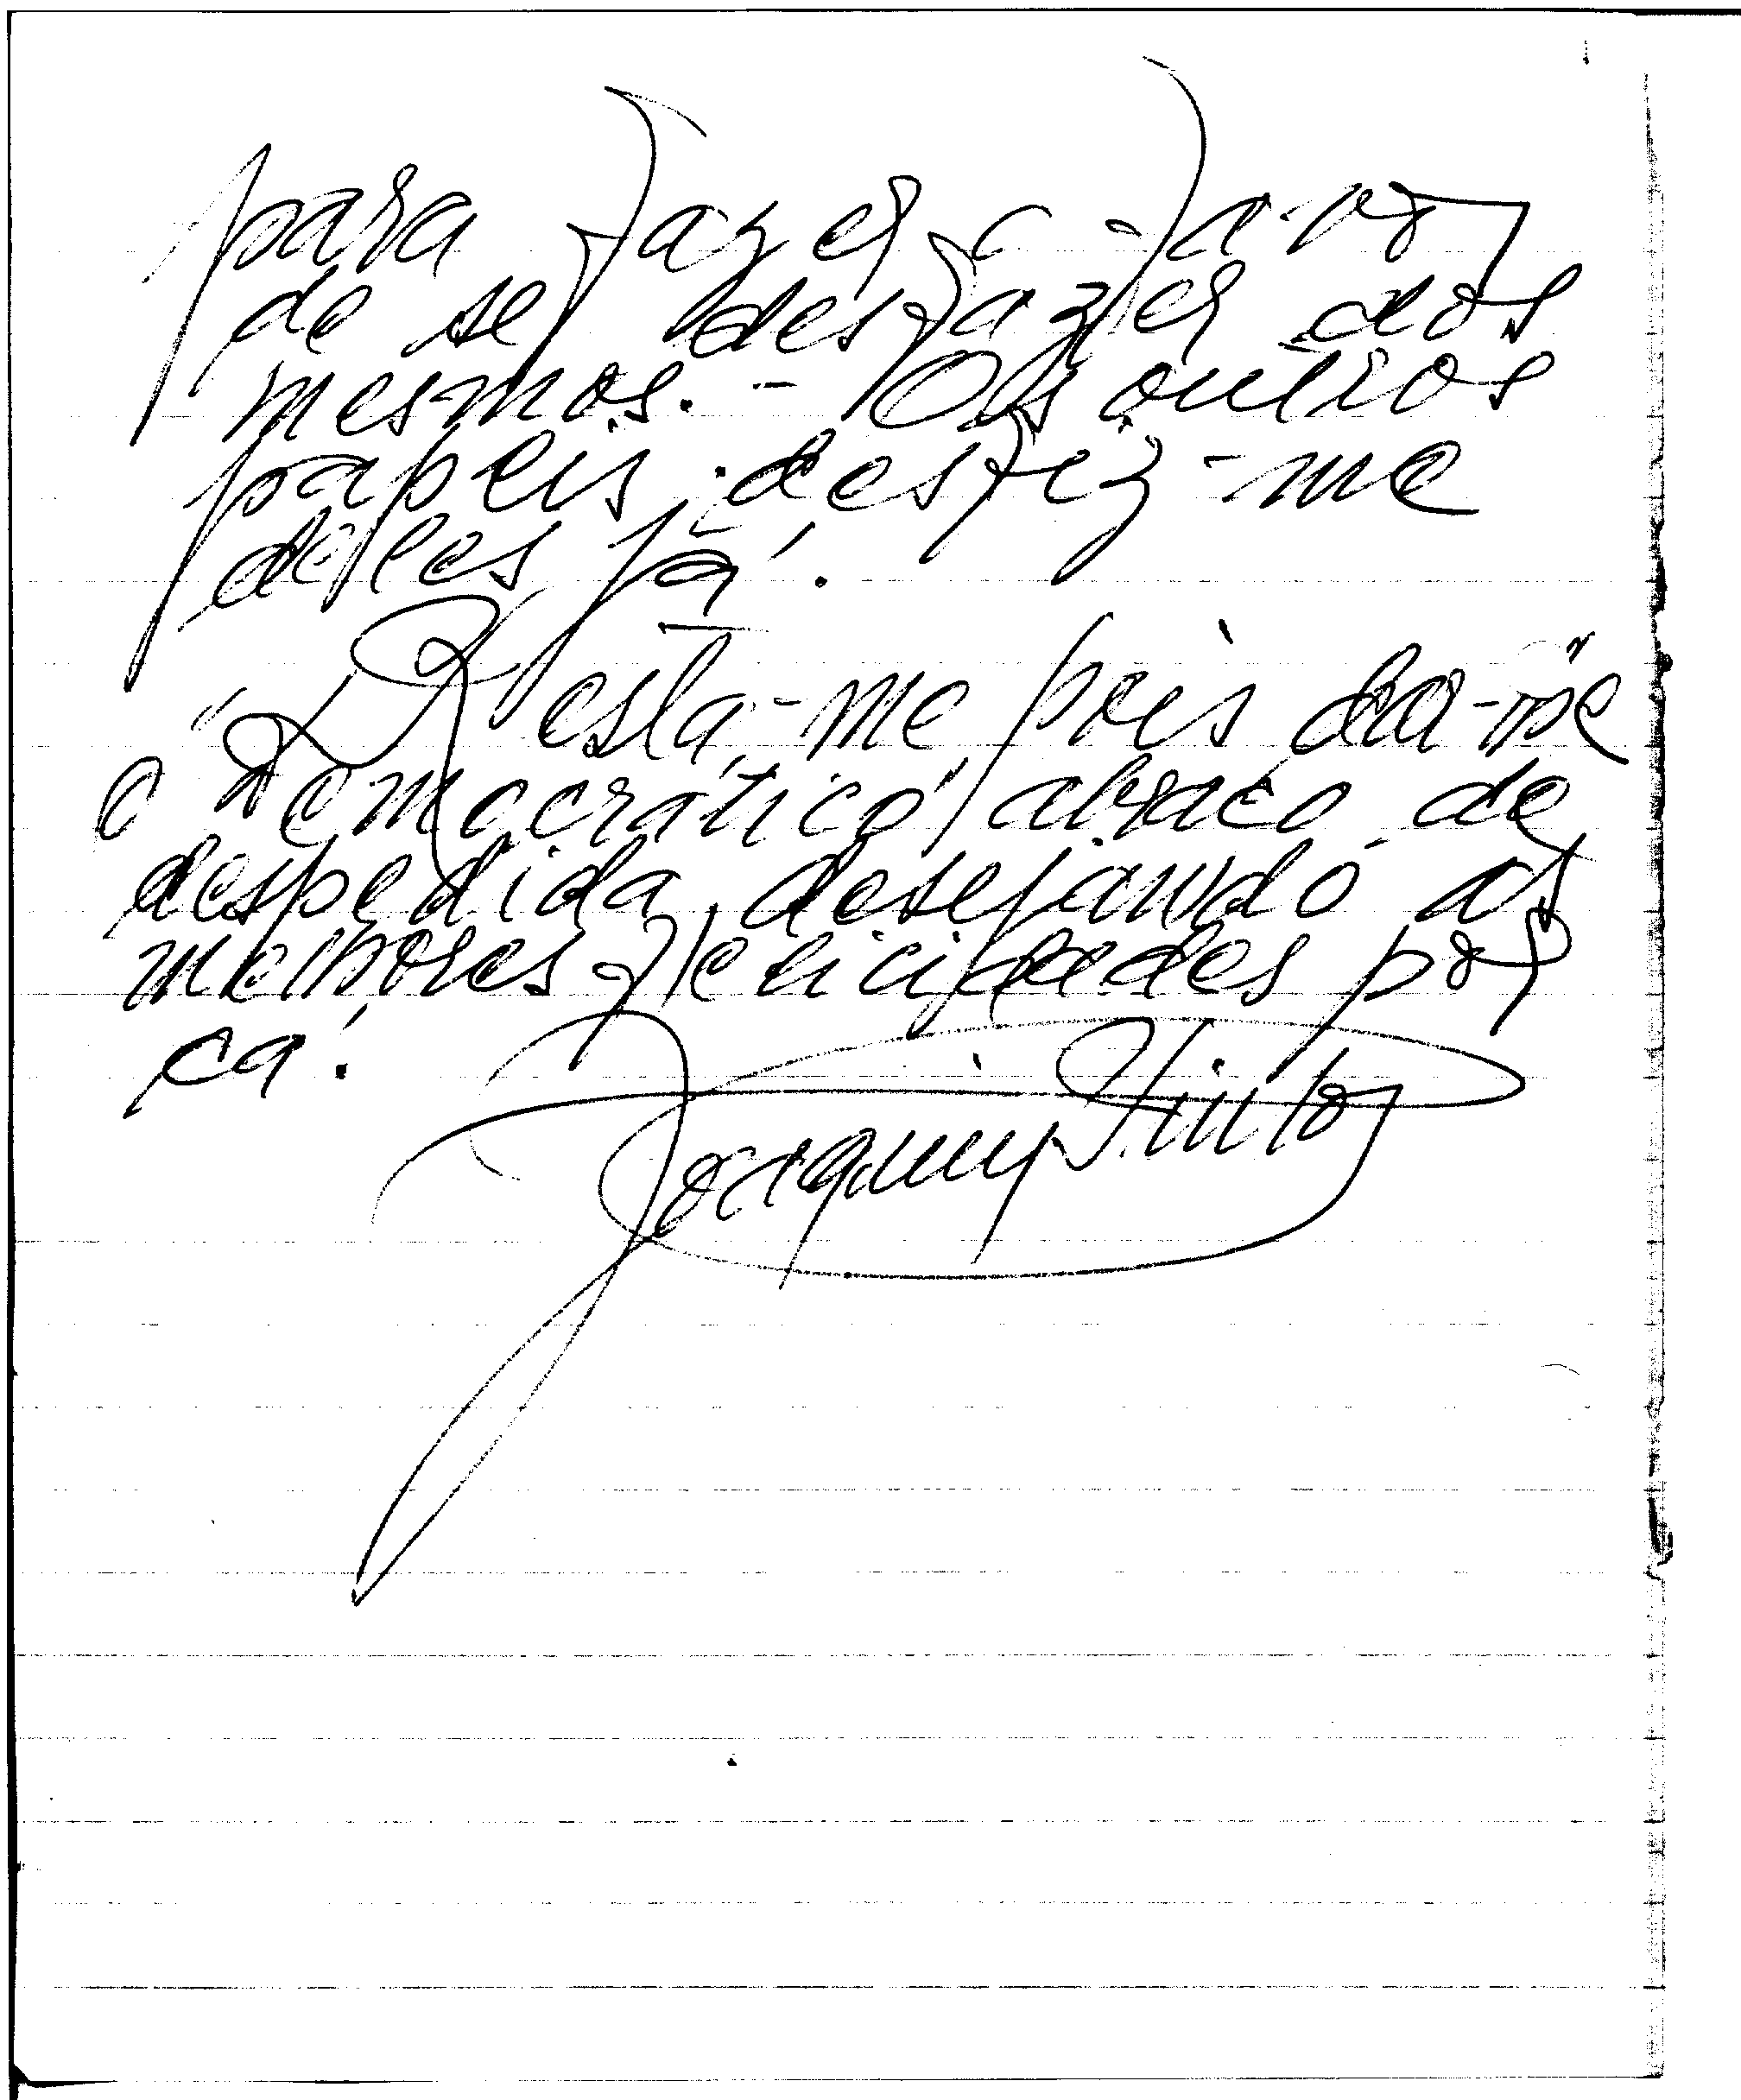 para fazer o favor
de se desfazer dos
mesmos. - Os outros
papeis desfiz-me
deles já.
Resta-me pois dar-me
o "Democrático" abraço de
despedida, desejando as
melhores felicidades por
cá.
Joaquim Pinto